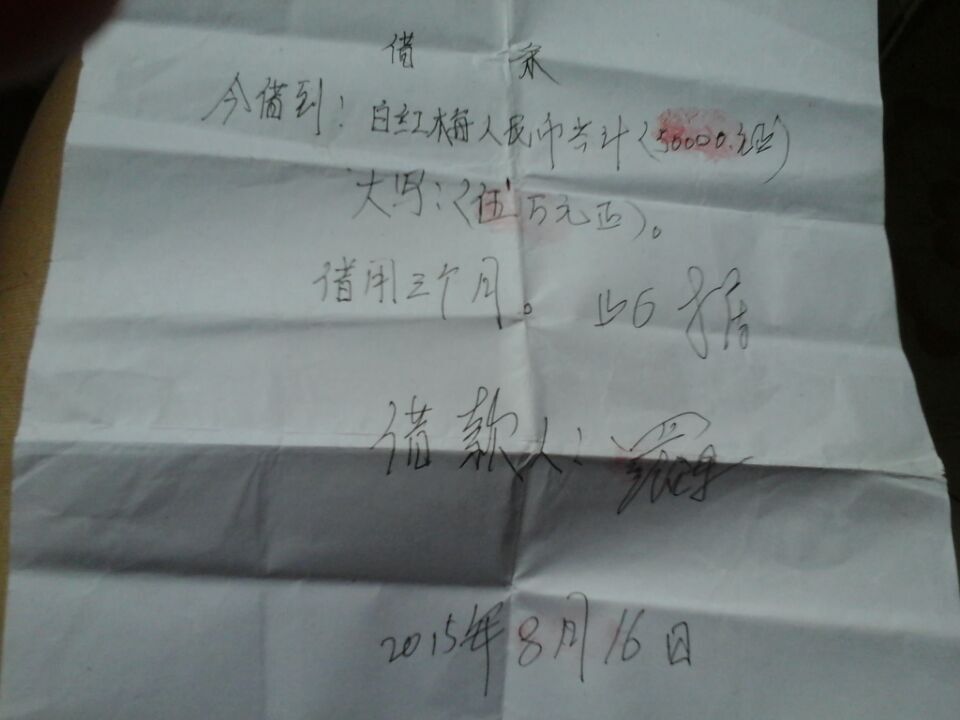 借 条
今借到：白红梅人民币共计（50000.元正）
大写：（伍万元正）。
借用三个月。 此据
借款人：
2015年8月16日